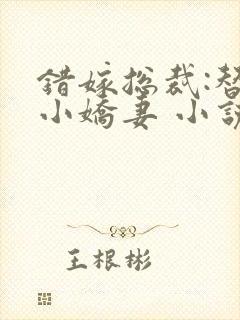 错嫁总裁:替
小娇妻 小说
王根彬